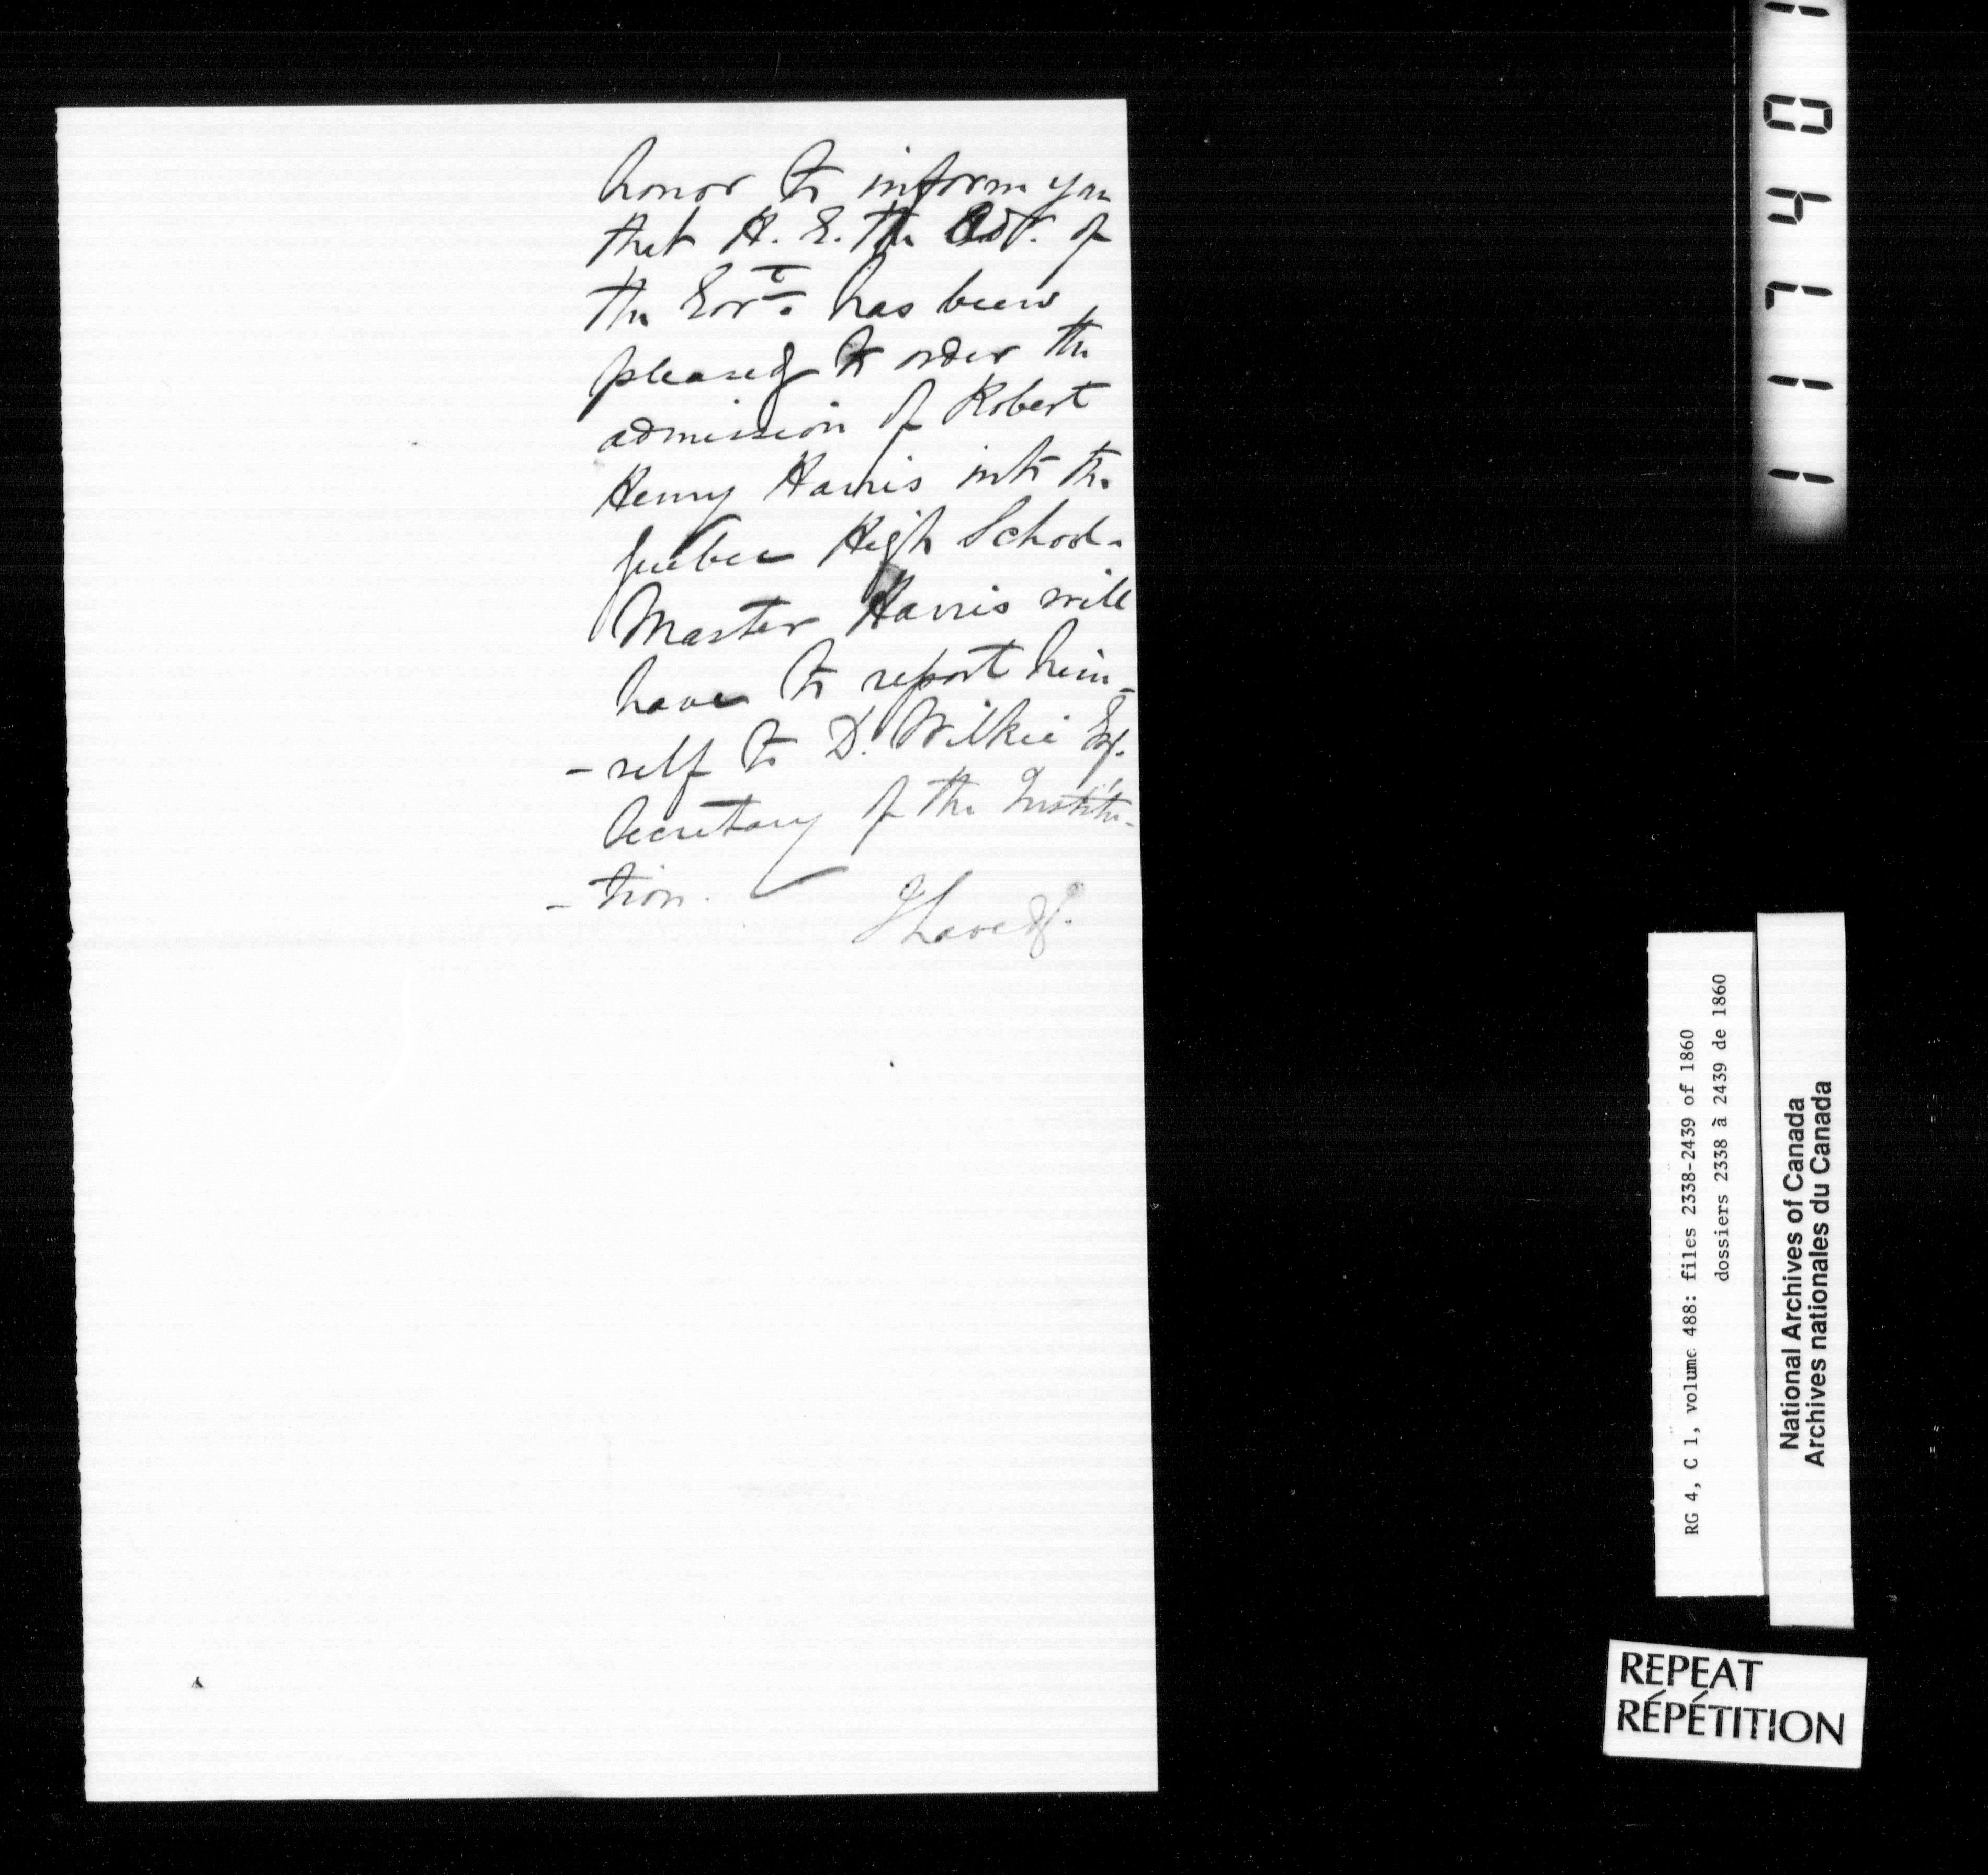 honor to inform you
that H. E. the Adr. of
the Govt. has been
pleased to order the
admission of Robert
Henry Harris into the
Quebec High School.
Master Harris will
have to report him-
-self to D. Wilkie Esq.
Secretary of the Institu-
-tion.
I have &.
1 0 4 7 1 1
RG 4, C 1, volume 488: files 2338-2439 of 1860
dossiers 2338 à 2439 de 1860
National Archives of Canada
Archives nationales du Canada
REPEAT
RÉPÉTITION